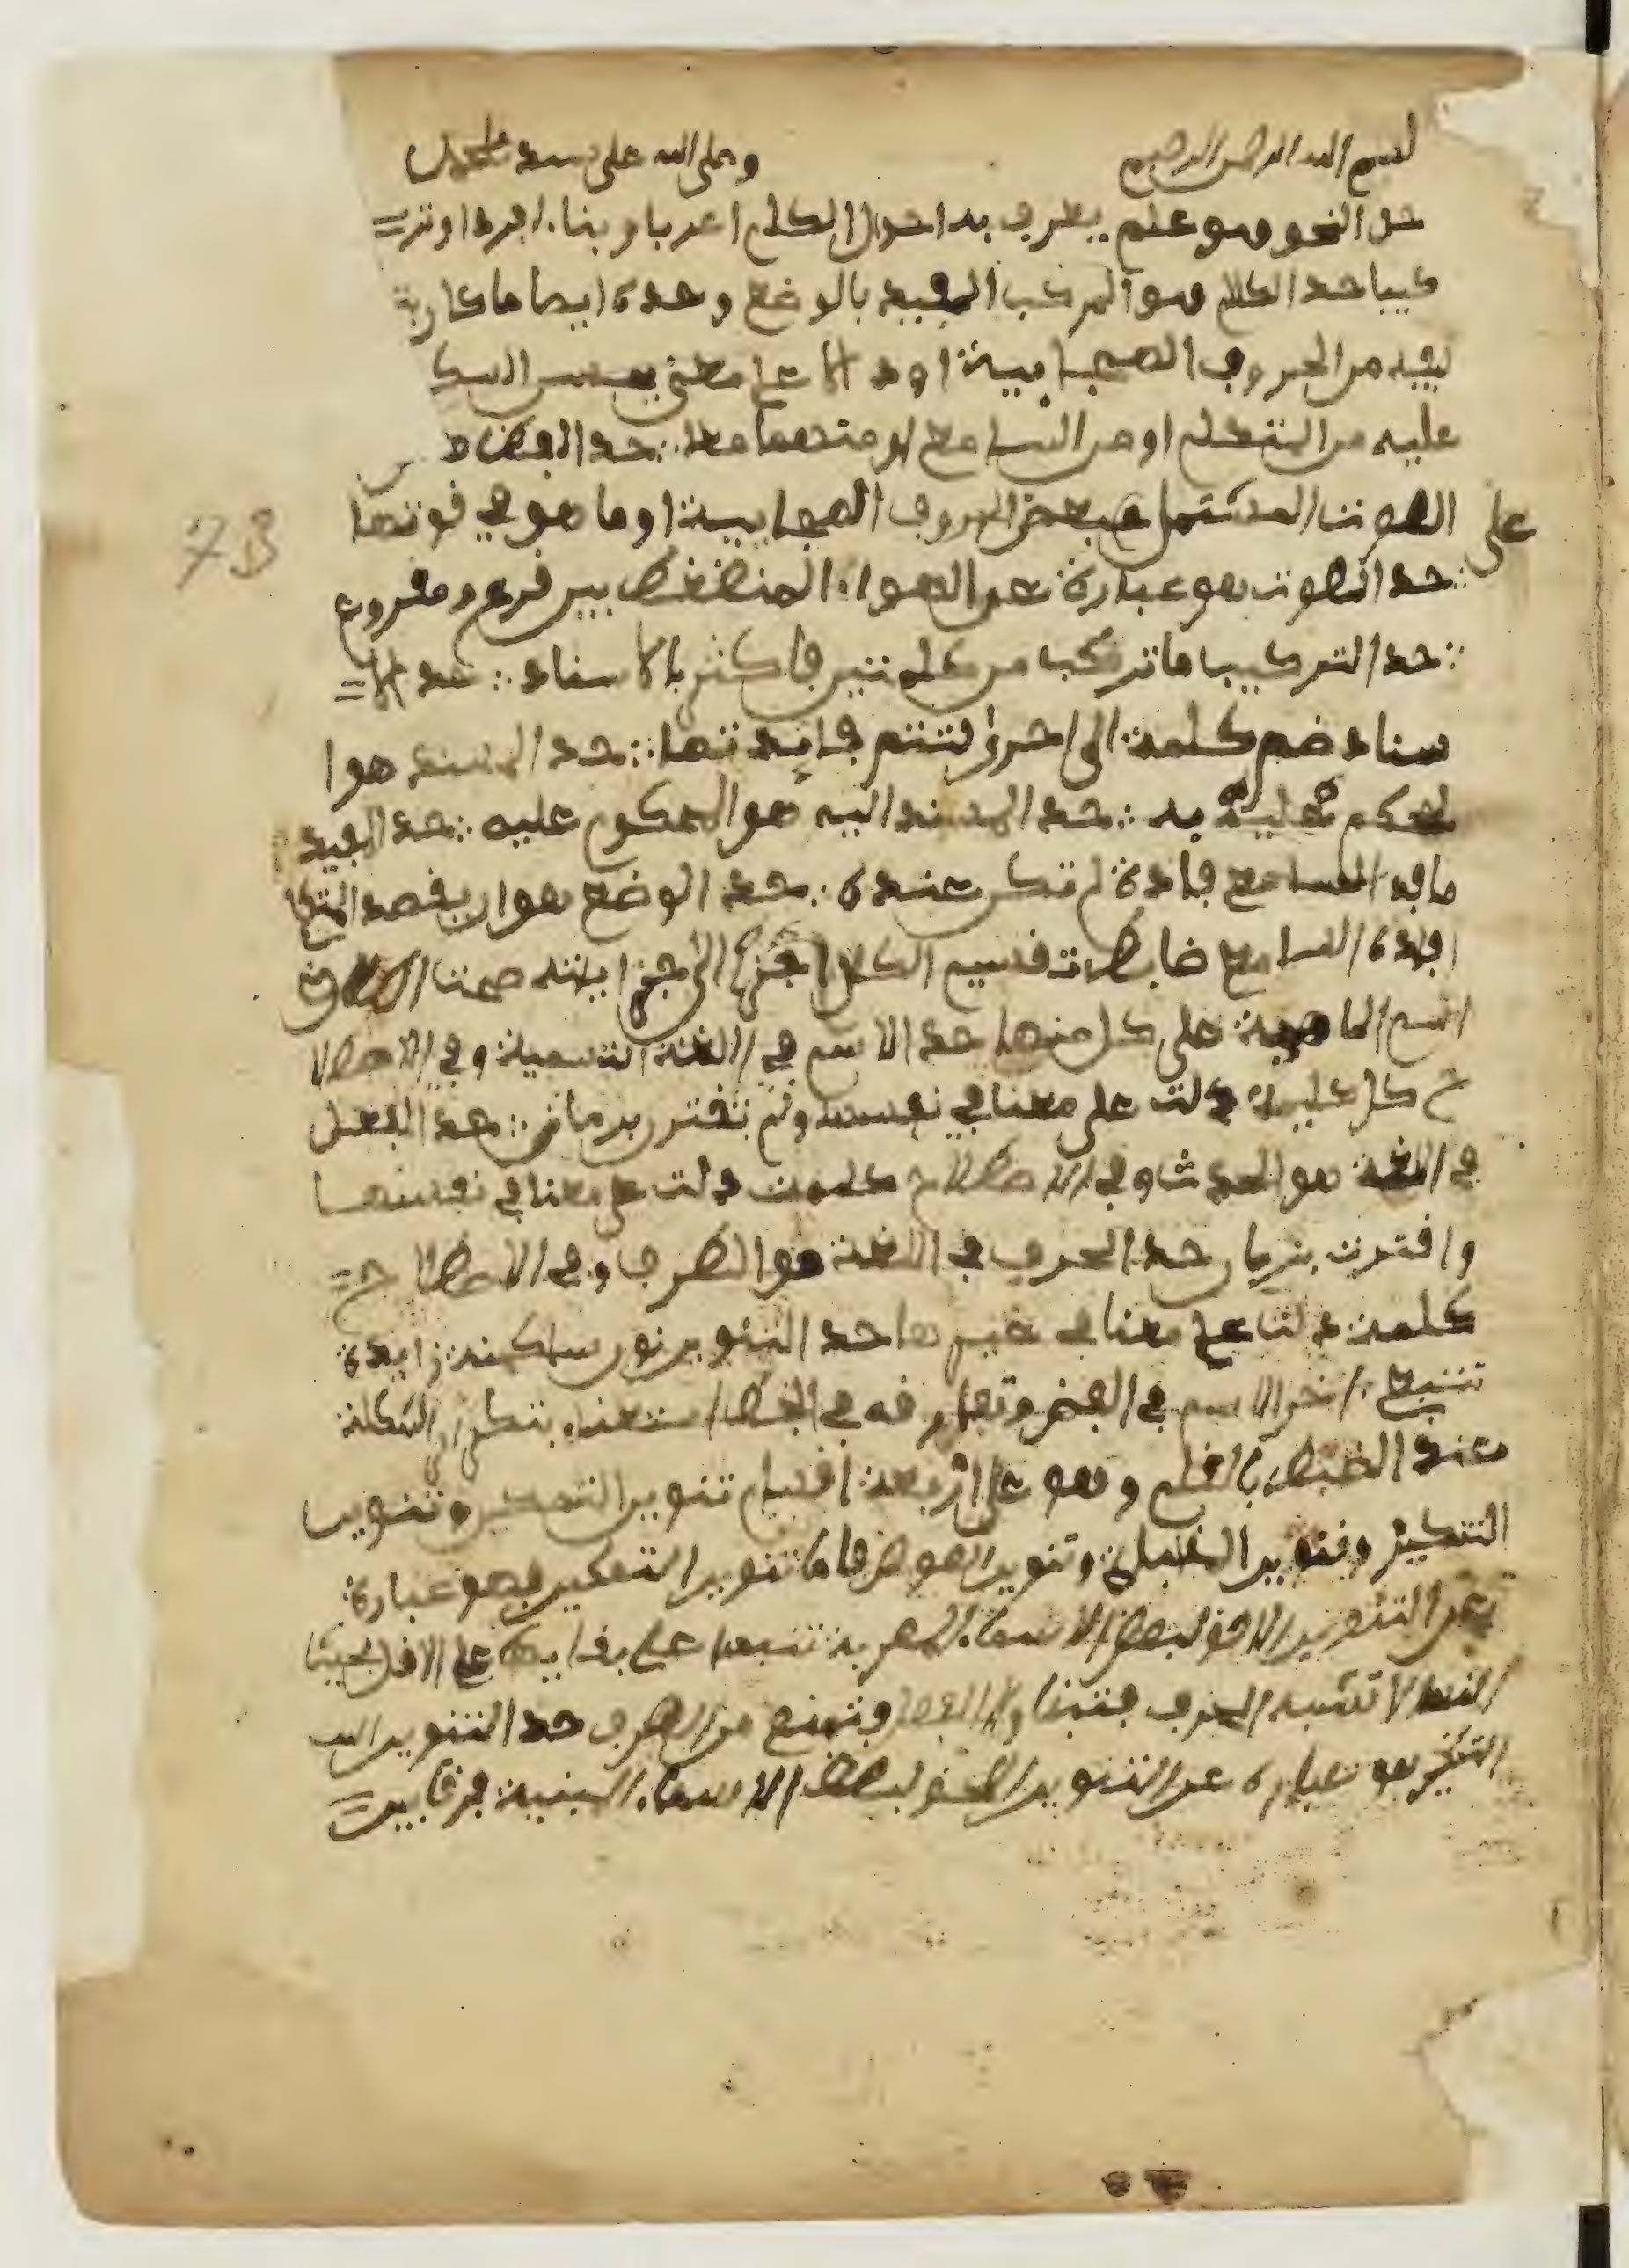 بسم الله الرحمن الرحيم وصلى الله على سيدنا محمد
حد النحو وهو علم يعرف به احوال الكلم اعربا وبنا. افردا وتر=
كيبا حد الكلام هو المركب المفيد بالوضع وحده ايضا ما كان
من الحروف الهجابية او د الا على معنى يحسن السكـ
عليه من المتكلم او من السامع او منهما معا ∴ حد اللفظ
على الصوت المشتمل بعض الحروف الهجايية او ما هو في قوتها
∴ حد الصوت هو عبارة عن الهوا. المنضغط بين قرع ومقروع
∴ حد التركيب ما تركب من كلمتين فاكثر بالاسناد ∴ حد الا=
سناد ضم كلمة الى اخرى لتتم فايدتها ∴ حد المسند هوا
لحكم به ∴ حد المسند اليه هو المحكوم عليه ∴ حد المفيد
ما فد السامع فادة لم تكن عنده ∴ حد الوضع هو ان يقصد المتكلم
افادة السامع ضابط تقسيم الكل الى جزاياته صحت
اسم الماهية على كل منها حد الاسم في اللغة التسمية وفي الاصطلا
ح كل كلمة دلت على معنا في نفسه ولم تقترن بزمان ∴ حد الفعل
في اللغة هو الحدث وفي الاصطلاح كلمت دلت على معنا في نفسها
واقترنت بزمان حد الحرف في اللغة هو الطرف وفي الاصطلاح =
كلمة دلت على معنا في غيرها حد التنوين نون ساكنة زايدة
تتبع اخر الاسم في اللفظ وتفارقه في الخط استغناء بتكرار الشكلة
عند الضبط بالقلم وهو على اربعة اقسام تنوين التمكين وتنوين
التنكير وتنوين المقابلة وتنوين العوض فاما تنوين التمكين فهو عبارة
عن التنوين الاحق لبعض الاسماء المعربة على بقايها على الاصل بحيث
انها لا تشبه الحرف فتبنا ولا الفعل فتمنع من الصرف حد التنوين
التنكير هو عبارة عن التنوين الاحق لبعض الاسماء المبنية فرقا بين =
73